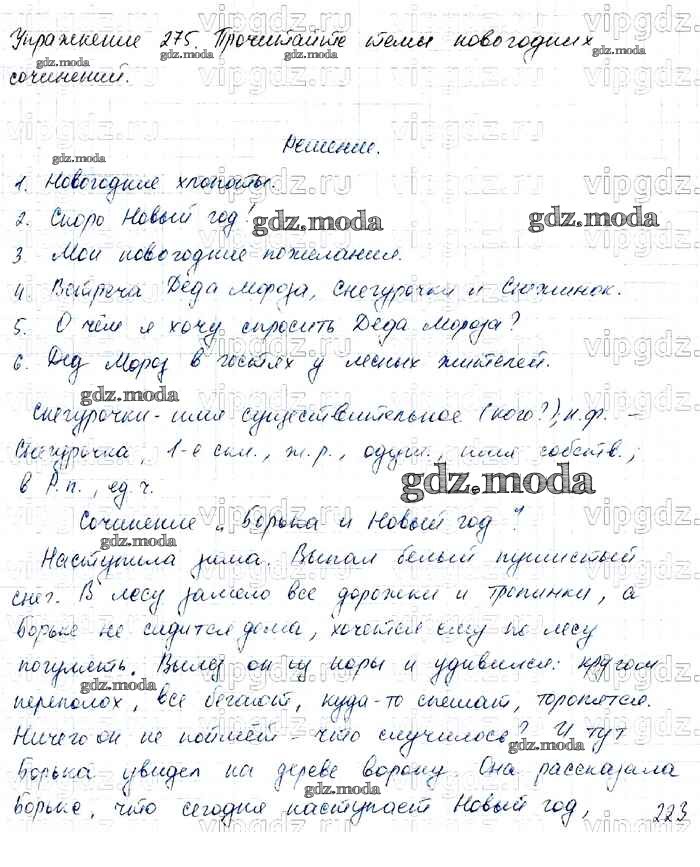 Упражнение 275. Прочитайте темы новогодних
сочинений.
Решение.
1. Новогодние хлопоты.
2. Скоро Новый год!
3. Мои новогодние пожелания.
4. Встреча Деда Мороза, Снегурочки и Снежинок.
5. О чём я хочу спросить Деда Мороза?
6. Дед Мороз в гостях у лесных жителей.
Снегурочки - имя существительное (кого?), н.ф. -
Снегурочка, 1-е скл., ж.р., одуш., имя собств.;
в Р.п., ед.ч.
Сочинение "Борька и Новый год"
Наступила зима. Выпал белый пушистый
снег. В лесу замело все дорожки и тропинки, а
Борьке не сидится дома, хочется ему по лесу
погулять. Вылез он из норы и удивился: кругом
переполох, все бегают, куда-то спешат, торопятся.
Ничего он не поймёт - что случилось? И тут
Борька увидел на дереве ворону. Она рассказала
Борьке, что сегодня наступает Новый год,
223
gdz.moda
vipgdz.ru